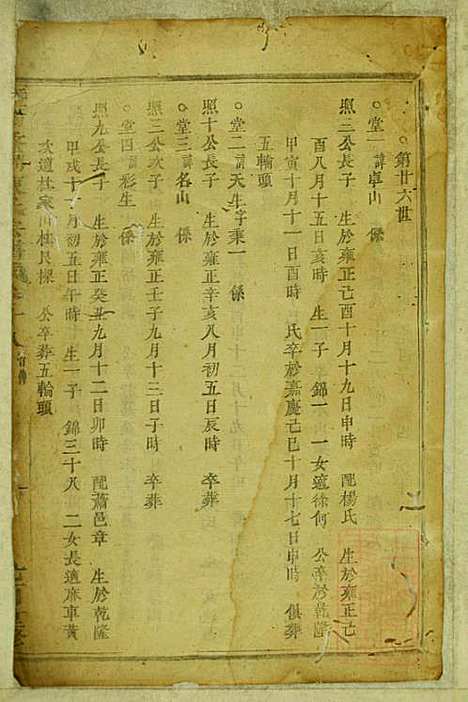 第廿六世
堂一諱卓山 係
照二公長子 生於雍正己酉十月十九日申時 配楊氏 生於雍正己
酉八月十五日亥時 生一子 錦一 一女適徐何 公卒於乾隆
甲寅十月十一日酉時 氏卒於嘉慶己巳十月十七日申時 俱葬
五輪頭
堂二諱天生字秉一 係
照十公長子 生於雍正辛亥八月初五日辰時 卒葬
堂三諱名山 係
照二公次子 生於雍正壬子九月十三日子時 卒葬
堂四諱彩生 係
照九公長子 生於雍正癸丑九月十二日卯時 配蕭邑章 生於乾隆
甲戌十一月初五日午時 生一子 錦三十八 二女長適麻車黃
次適杜家 樓良樑 公卒葬五輪頭